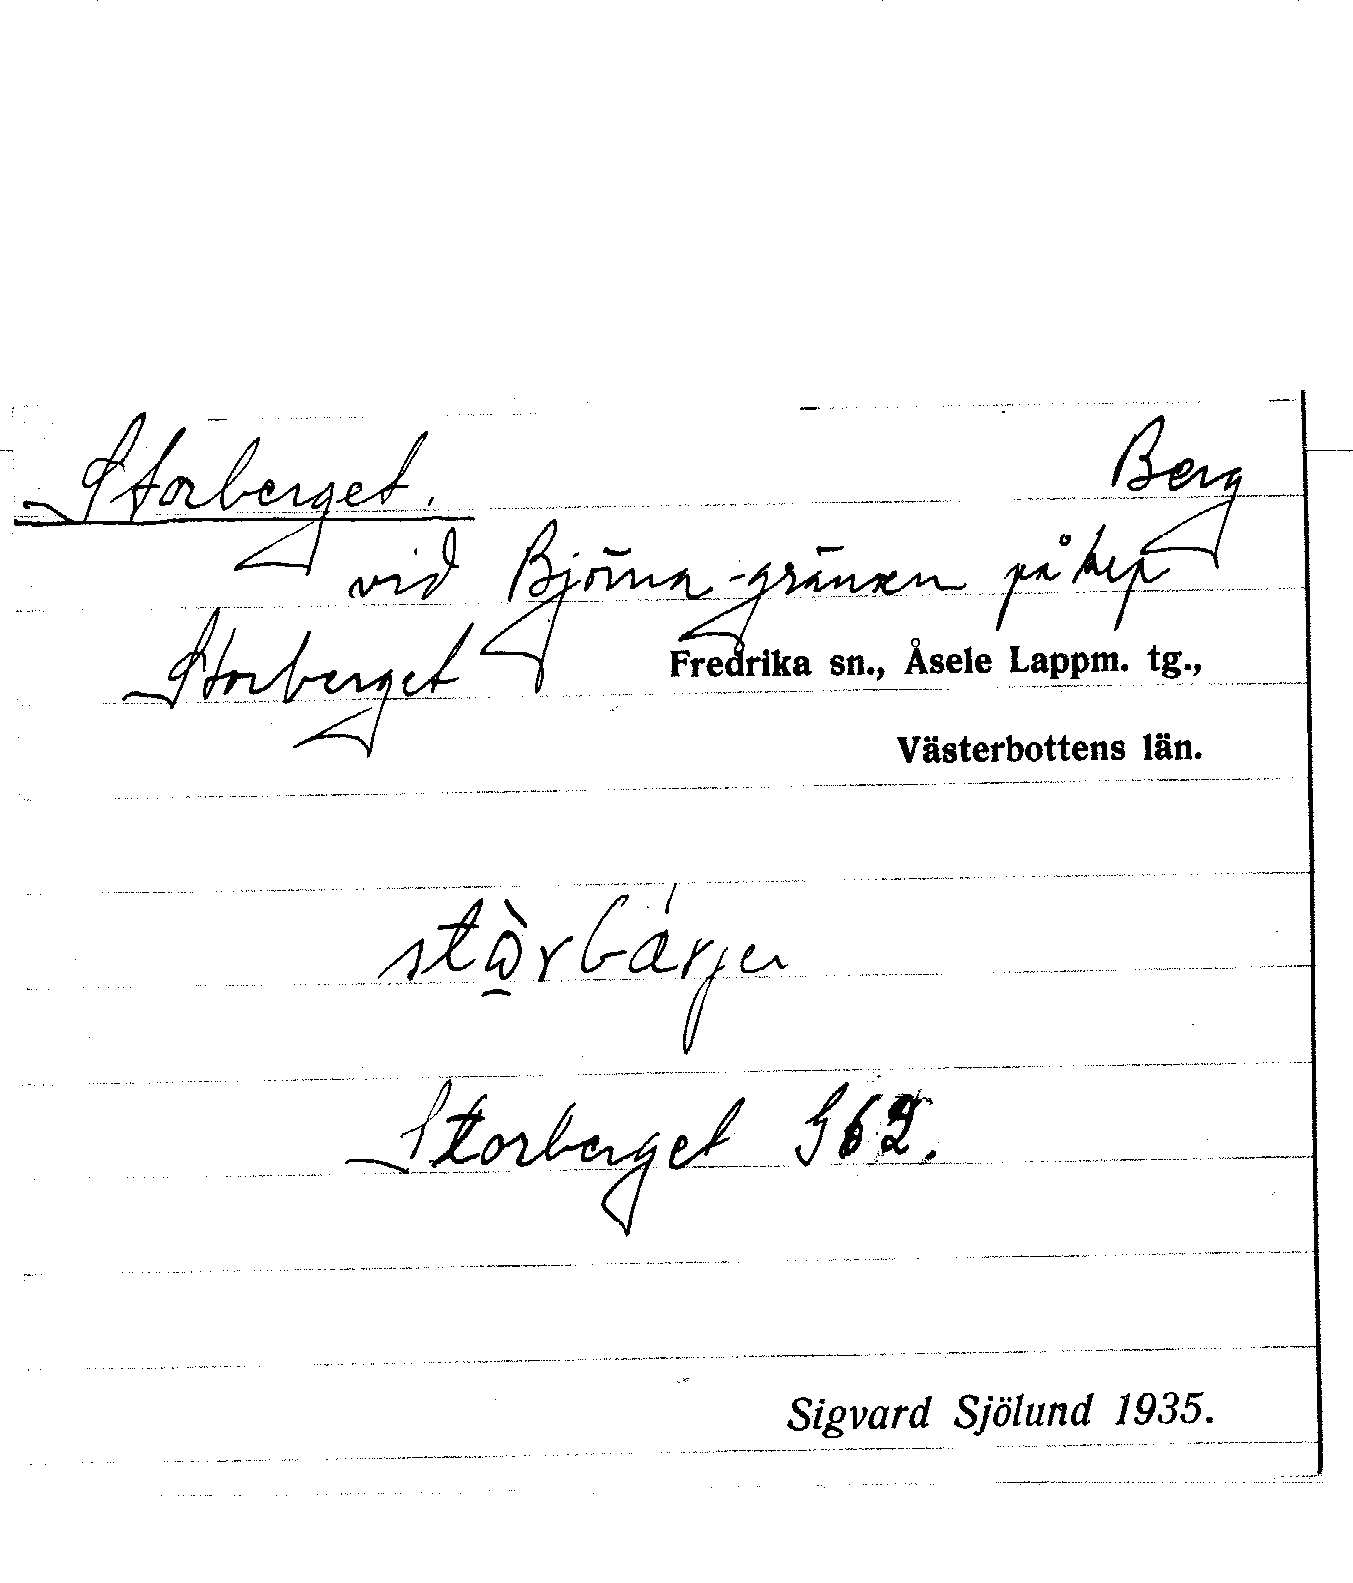 Storberget. Berg
vid Björna-gränsen på hep
Storberget Fredrika sn., Åsele Lappm. tg.,
Västerbottens län.
Storberget G62.
Sigvard Sjölund 1935.